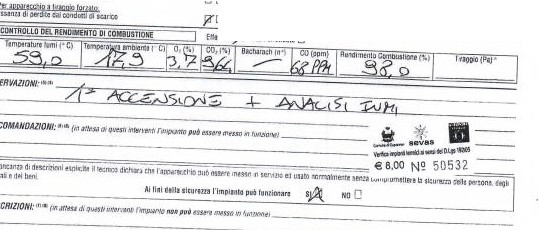 Per apparecchio a tiraggio forzato:
ssenza di perdite dai condotti di scarico
CONTROLLO DEL RENDIMENTO DI COMBUSTIONE Effe
Temperatura fumi (°C) Temperatura ambiente (°C) O₂ (%) CO₂ (%) Bacharach (n°) CO (ppm) Rendimento Combustione (%) Tiraggio (Pa)
59,0 17,9 3,7 9,64 — 68 PPM 98,0
ERVAZIONI:
1° ACCENSIONE + ANALISI FUMI
COMANDAZIONI: (in attesa di questi interventi l'impianto può essere messo in funzione)
sevas
Verifica impianti termici ai sensi del D.Lgs 192/05
€ 8,00 N° 50532
ancanza di descrizioni esplicite il tecnico dichiara che l'apparecchio può essere messo in servizio ed usato normalmente senza compromettere la sicurezza delle persone, degli
ali e dei beni.
Ai fini della sicurezza l'impianto può funzionare SI NO
CRIZIONI: (in attesa di questi interventi l'impianto non può essere messo in funzione)